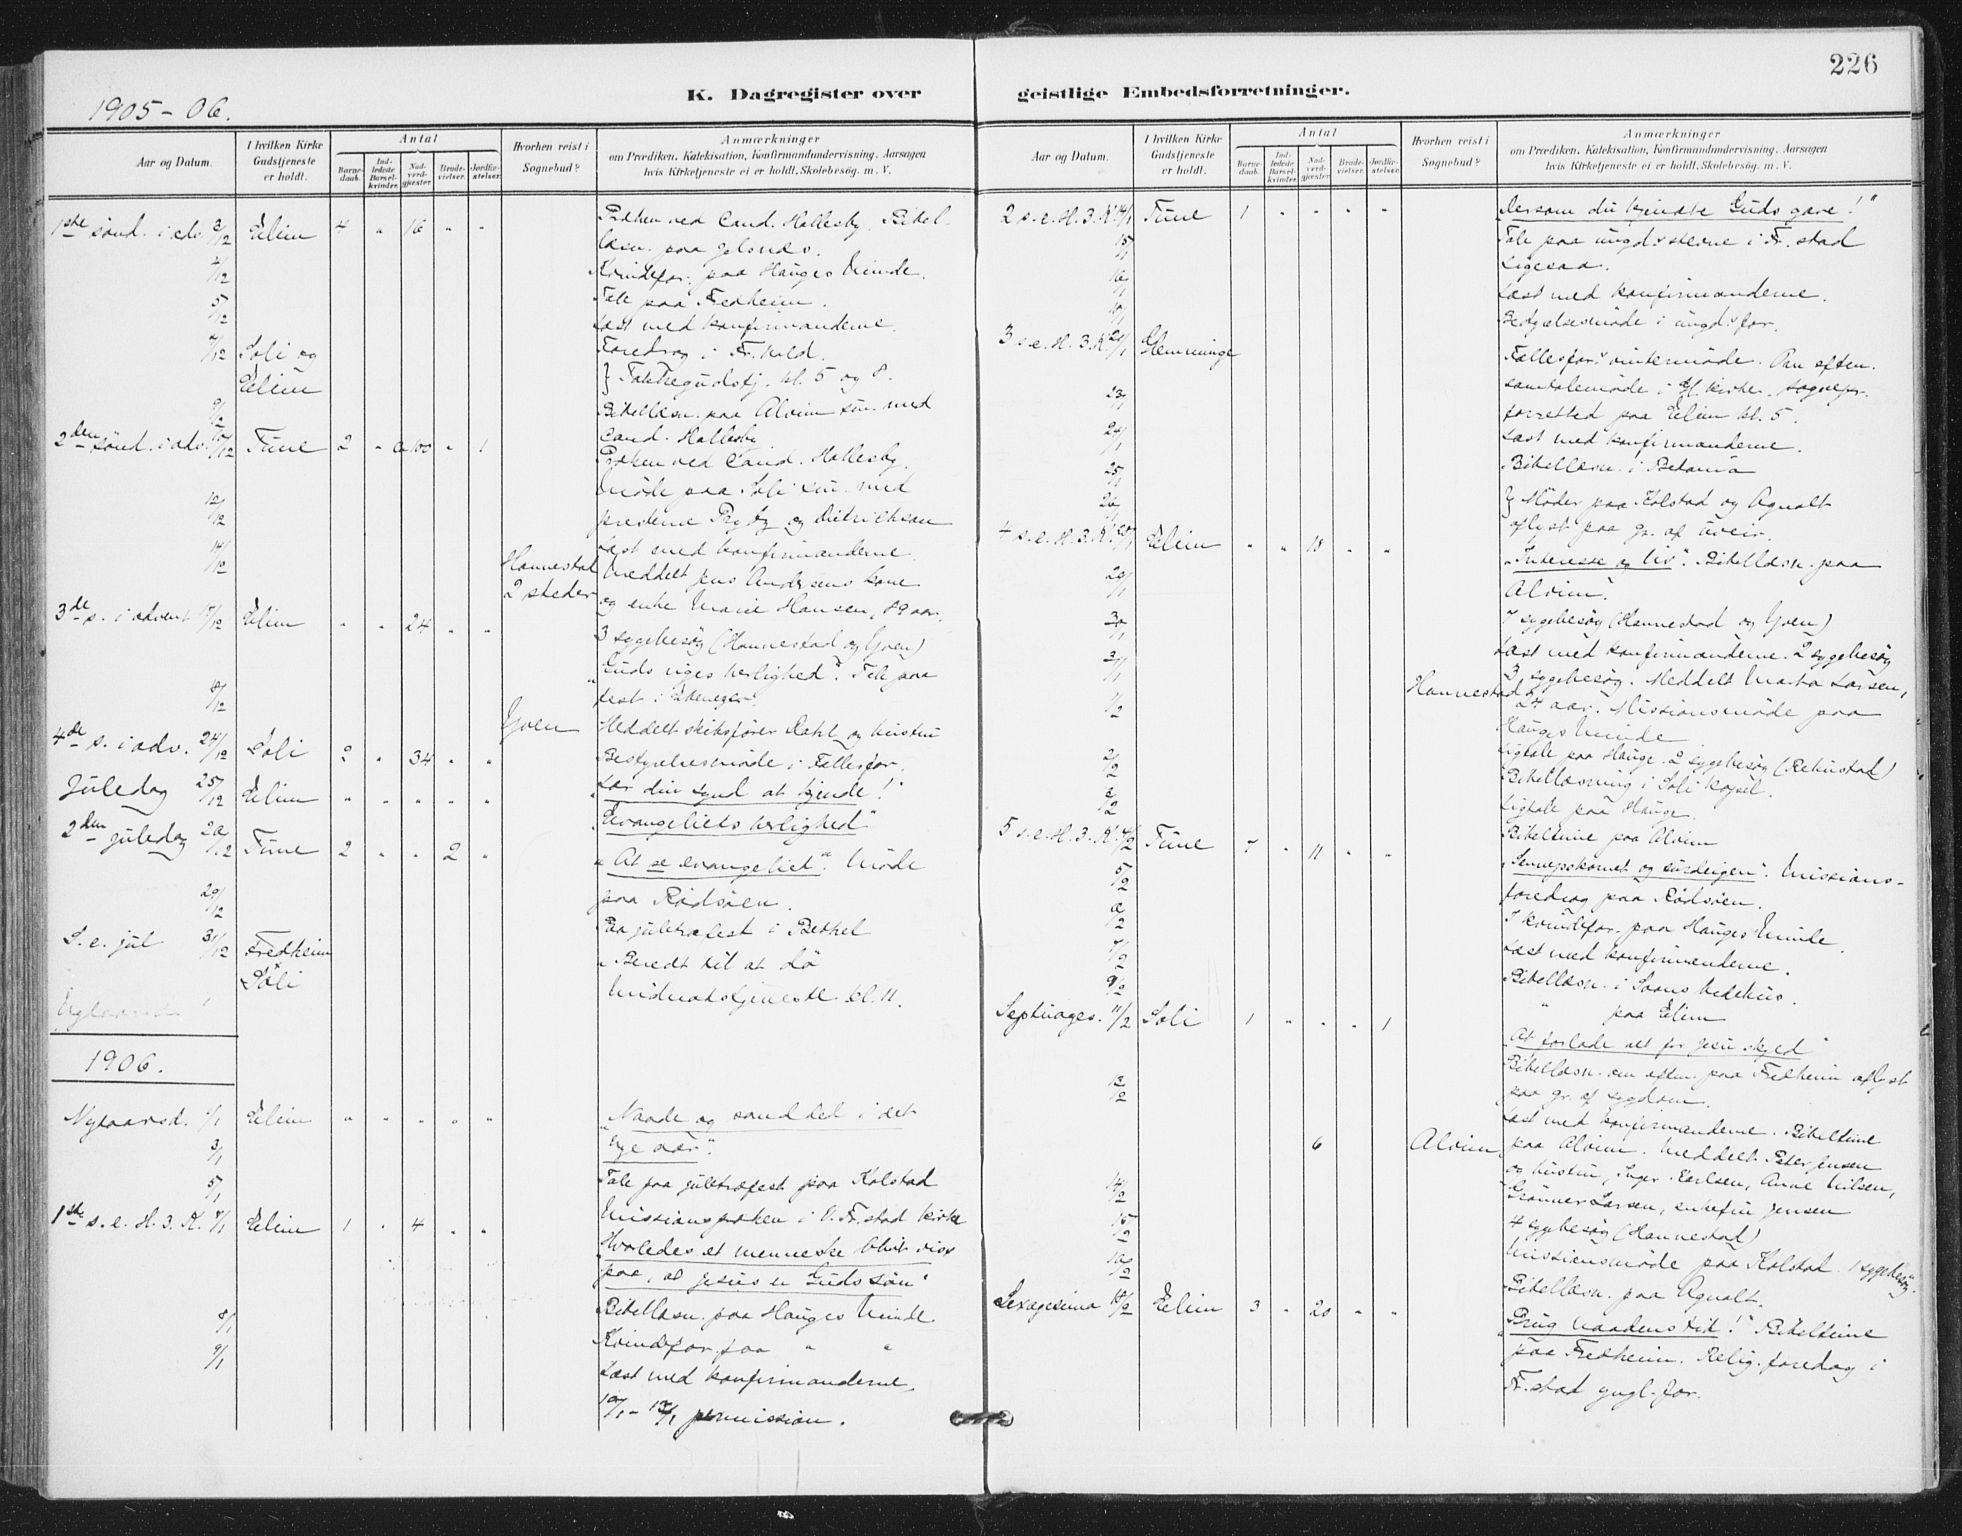 226
K. Dagregister over geistlige Embedsforretninger.
1905-06.
Aar og Datum.
I hvilken Kirke Gudstjeneste er holdt.
Antal
Barnedaab.
Indledede Barselkvinder.
Nadverdgjæster
Brudevielser.
Jordfæstelser.
Hvorhen reist i Sognebud?
Anmærkninger
om Prædiken, Katekisation, Konfirmandundervisning, Aarsagen
hvis Kirketjeneste ei er holdt, Skolebesøg, m. V.
1ste sönd. i adv. 3/12 Elim 4 " 16 " " Præken ved Cand. Hallesby. Bibel-
læsn. paa
4/12 Kvindefor. paa Hauges Minde.
5/12 Tale paa Fredheim.
Læst med konfirmanderne.
7/12 Soli og Foredrag i Fr.hald.
Elim } Taktegudstj. kl. 5 og 8.
9/12 Bibellæsn. paa Alvim sm. med
Cand. Hallesby
2den sönd. i adv. 10/12 Tune 2 " ca 100 " 1 Præken ved Cand. Hallesby.
12/12 Möde paa Soli sm. med
presterne Prytz og Dietrichson
14/12 Læst med konfirmanderne.
Hannestad Meddelt Jens Andersens kone
2 steder og enke Marie Hansen, 89 aar.
3de s. i advent 17/12 Elim " " 24 " "
3 sygebesög (Hannestad og Yven)
"Guds riges herlighed". Tale paa
fest i Ebenezer.
18/12 Yven Meddelt skibsfører Dahl og hustru
Bestyrelsesmöde i Fællesfor.
4de s. i adv. 24/12 Soli 2 " 34 " " "Lær din synd at kjende!"
Juledag 25/12 Elim " " " " " "Evangeliets herlighed"
2den juledag 26/12 Tune 2 " " 2 " "At se evangeliet". Möde
paa Rödsöen.
29/12 Paa juletræfest i Bethel
S. e. jul 31/12 Fredheim "Beredt til at dö
Soli Midnatstjeneste kl. 11.
1906.
Nytaarsd. 1/1 Elim " " " " " "Naade og sanddel i det
nye aar".
3/1
5/1 Tale paa juletræfest paa Kolstad
Missionspræken i Ö. Fr.stad kirke
1ste s. e. H. 3. K. 7/1 Elim 1 " 4 " " "Hvorledes et menneske blir viss
paa, at Jesus er Guds sön"
8/1 Bibellæsn. paa Hauges Minde
9/1 Kvindefor. paa " "
Læst med konfirmanderne
permission.
Aar og Datum.
I hvilken Kirke Gudstjeneste er holdt.
Antal
Barnedaab.
Indledede Barselkvinder.
Nadverdgjæster.
Brudevielser.
Jordfæstelser.
Hvorhen reist i Sognebud?
Anmærkninger
om Prædiken, Katekisation, Konfirmandundervisning, Aarsagen
hvis Kirketjeneste ei er holdt, Skolebesøg, m. V.
2 s. e. H. 3. K. 14/1 Tune 1 " " " " "Dersom du kjendte Guds gave!"
15/1 Tale paa ungd.stevne i Fr.stad
16/1 Ligesaa.
Læst med konfirmanderne.
Bestyrelsesmöde i ungd.sfor.
3 s. e. H. 3. K. 21/1 Glemminge Fællesfor.s vintermöde. Om eften.
samtalemöde i Gl. kirke. Sognepr.
23/1 forretted paa Elim kl. 5.
24/1 Læst med konfirmanderne.
25/1 Bibellæsn. i Betania
26/1 } Möder paa Kolstad og Agnalt
aflyst paa gr. af uveir.
4 s. e. H. 3. K. 28/1 Elim " " 18 " " "Interesse og liv". Bibellæsn. paa
29/1 Alvim.
30/1 7 sygebesög (Hannestad og Yven)
Læst med konfirmanderne. 2 sygebesög
31/1 3 sygebesög. Meddelt Marta Larsen,
1/2 Hannestad 24 aar. Missionsmöde paa
Hauges Minde
2/2 Ligtale paa Hauge. 2 sygebesög (Rekustad)
Bibellæsning i Soli kapel.
3/2 Ligtale paa Hauge.
Bibeltime paa Alvim
5 s. e. H. 3. K. 4/2 Tune 7 " 11 " " "Sennepskornet og surdeigen". Missions-
5/2 foredrag paa Rödsöen.
6/2 I kvindefor. paa Hauges Minde.
7/2 Læst med konfirmanderne.
9/2 Bibellæsn. i bedehus.
" paa Elim
Septuages. 11/2 Soli 1 " " " 1 "At forlade alt for Jesu skyld"
Bibellæsn. om eften. paa Fredheim aflyst
13/2 paa gr. af sygdom.
Læst med konfirmanderne. Bibeltime
6 Alvim paa Alvim. Meddelt Peter Jensen
og hustru, Inger Karlsen, Anne Nilsen,
14/2 Larsen, enkefru Jensen
15/2 4 sygebesög (Hannestad)
16/2 Missionsmöde paa Kolstad. 1 sygebesög.
Bibellæsn. paa Agnalt.
Sexagesima 18/2 Elim 3 " 20 " " "Brug naadens tid!" Bibeltime
paa Fredheim. Relig. foredrag i
Fr.stad yngl.for.